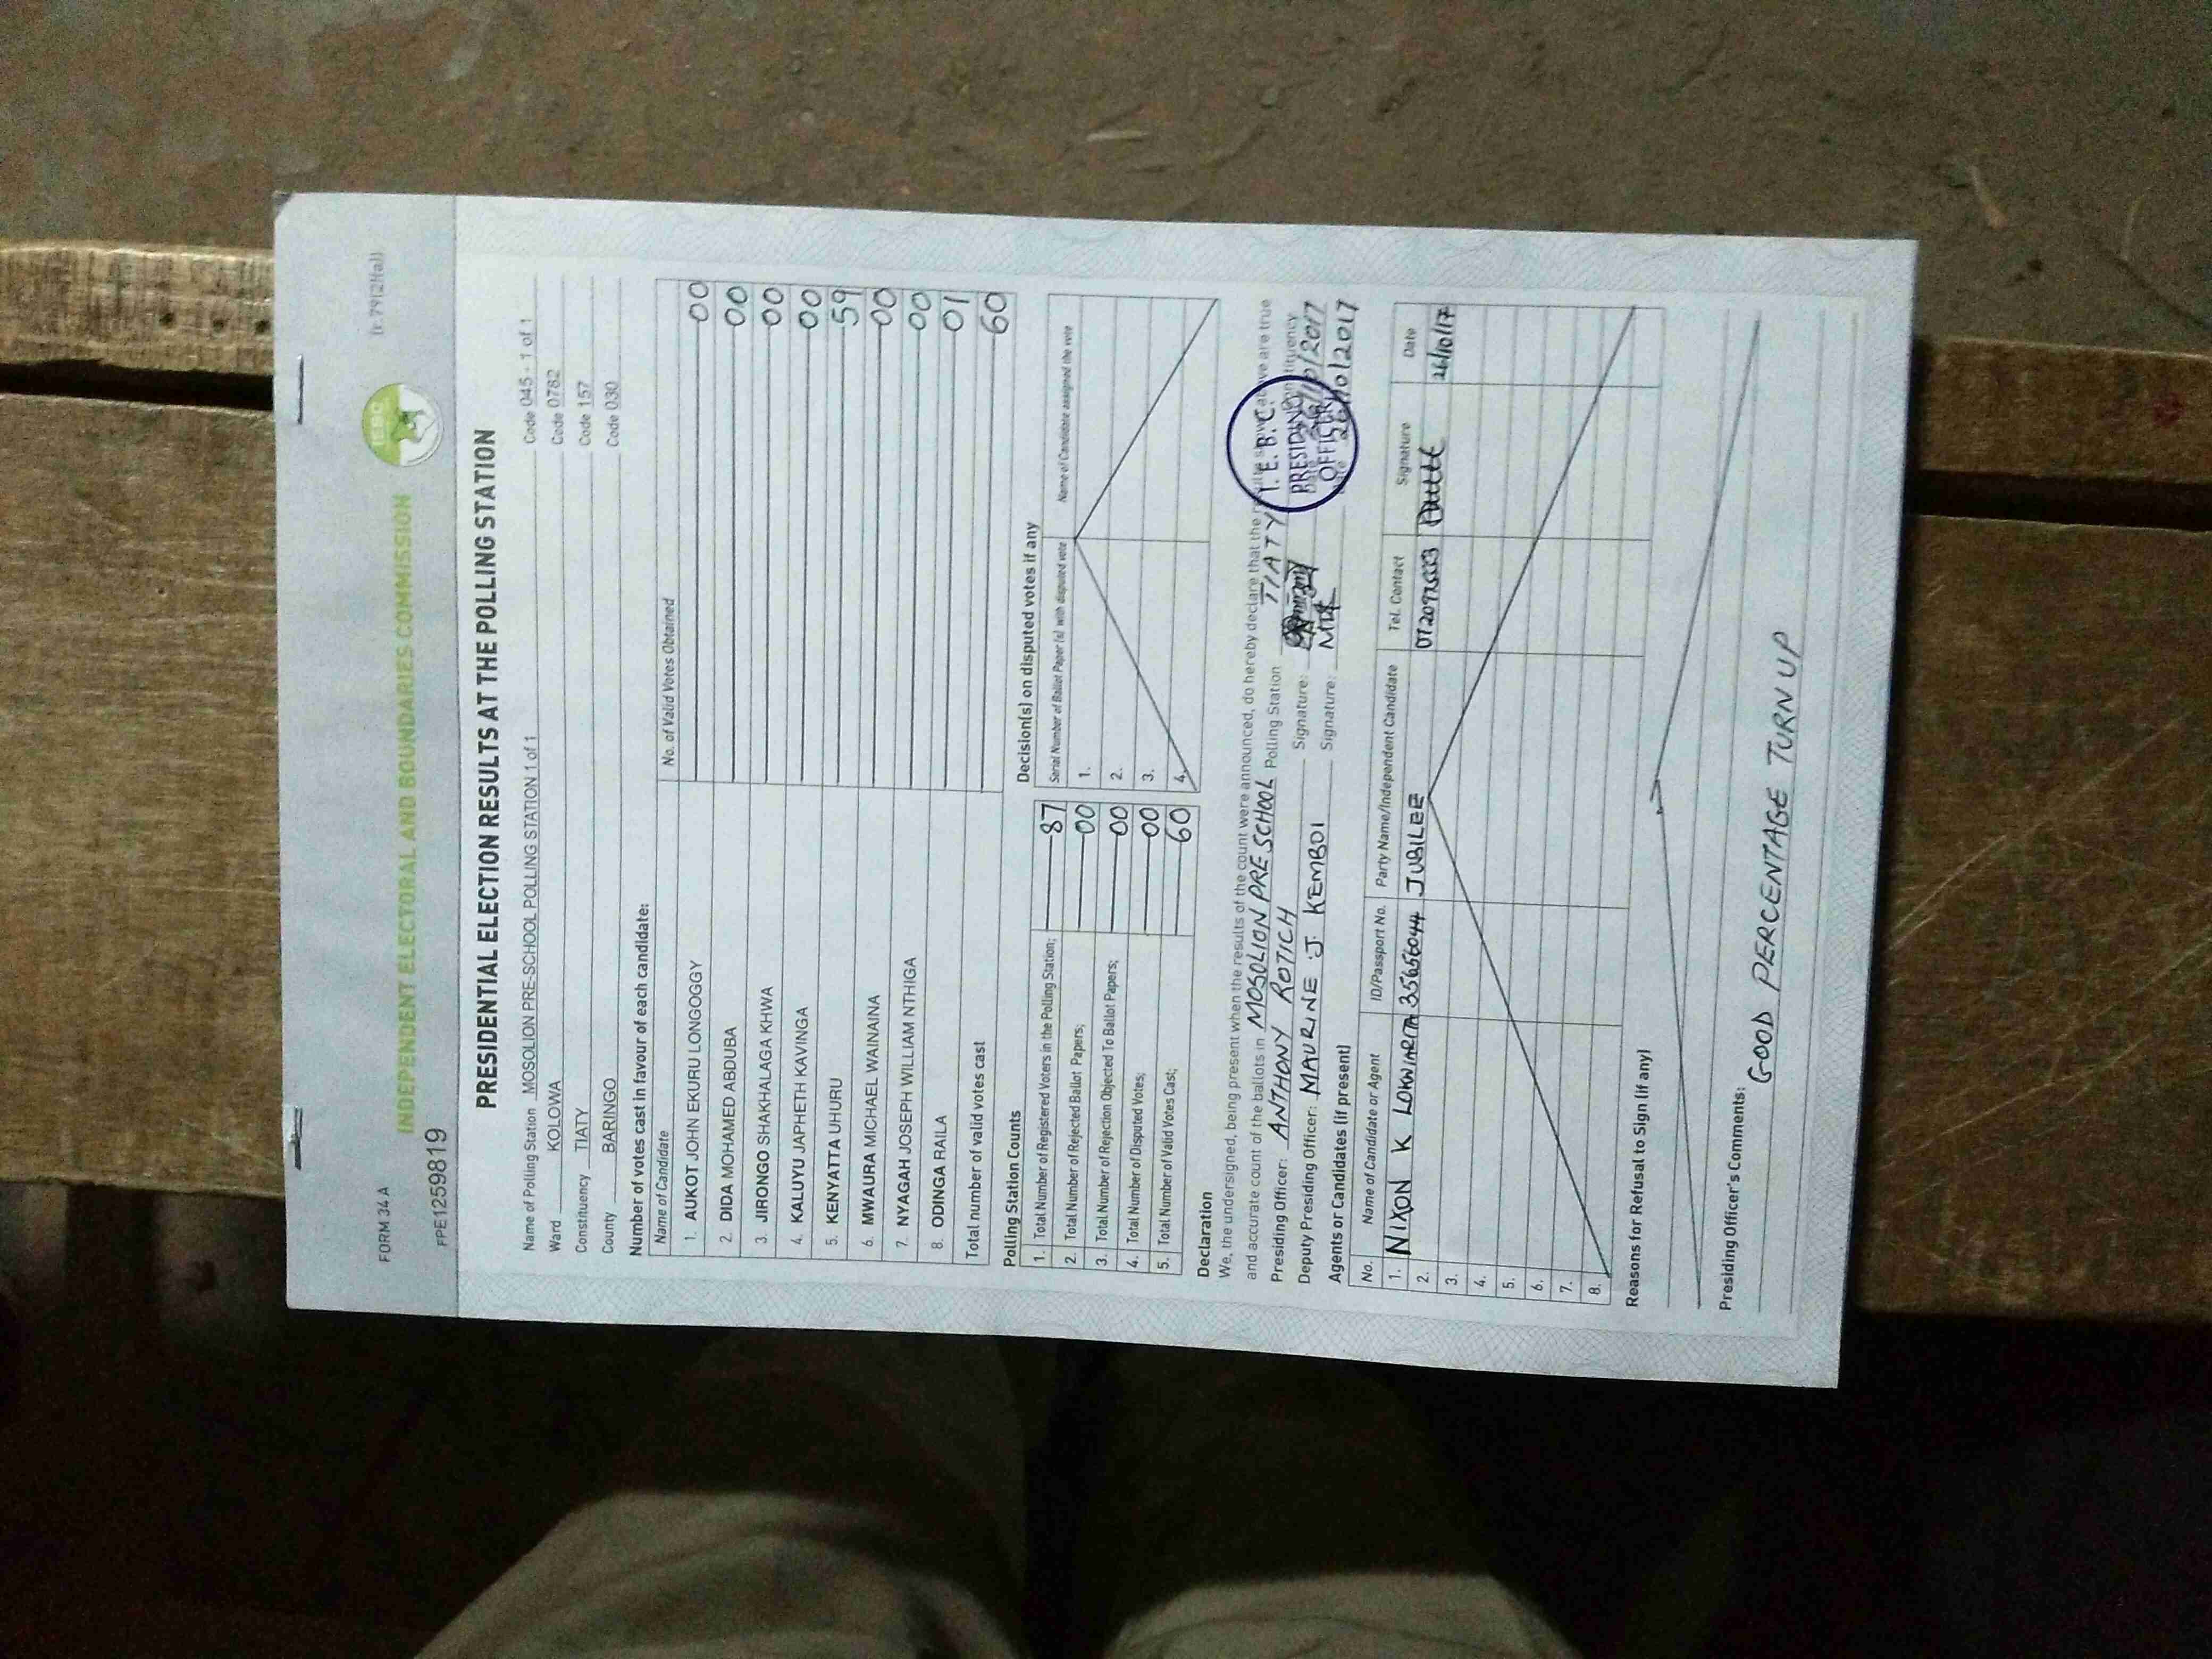 FORM 34 A
(r. 79(2)(a))
INDEPENDENT ELECTORAL AND BOUNDARIES COMMISSION
IEBC
FPE1259819
PRESIDENTIAL ELECTION RESULTS AT THE POLLING STATION
Name of Polling Station MOSOLION PRE-SCHOOL POLLING STATION 1 of 1 Code 045 - 1 of 1
Ward KOLOWA Code 0782
Constituency TIATY Code 157
County BARINGO Code 030
Number of votes cast in favour of each candidate:
Name of Candidate No. of Valid Votes Obtained
1. AUKOT JOHN EKURU LONGOGGY 00
2. DIDA MOHAMED ABDUBA 00
3. JIRONGO SHAKHALAGA KHWA 00
4. KALUYU JAPHETH KAVINGA 00
5. KENYATTA UHURU 59
6. MWAURA MICHAEL WAINAINA 00
7. NYAGAH JOSEPH WILLIAM NTHIGA 00
8. ODINGA RAILA 01
Total number of valid votes cast 60
Polling Station Counts
1. Total Number of Registered Voters in the Polling Station; 87
2. Total Number of Rejected Ballot Papers; 00
3. Total Number of Rejection Objected To Ballot Papers; 00
4. Total Number of Disputed Votes; 00
5. Total Number of Valid Votes Cast; 60
Decision(s) on disputed votes if any
Serial Number of Ballot Paper (s) with disputed vote Name of Candidate assigned the vote
1.
2.
3.
4.
Declaration
We, the undersigned, being present when the results of the count were announced, do hereby declare that the above are true
and accurate count of the ballots in MOSOLION PRE SCHOOL Polling Station TIATY
Presiding Officer: ANTHONY ROTICH Signature:
Deputy Presiding Officer: MAURINE J. KEMBOI Signature: 26/10/2017
I. E. B. C.
PRESIDING
OFFICER
Agents or Candidates (if present)
No. Name of Candidate or Agent ID/Passport No. Party Name/Independent Candidate Tel. Contact Signature Date
1. NIXON K LOKWIARITA 35656044 JUBILEE 26/10/17
2.
3.
4.
5.
6.
7.
8.
Reasons for Refusal to Sign (if any)
Presiding Officer's Comments:
GOOD PERCENTAGE TURN UP